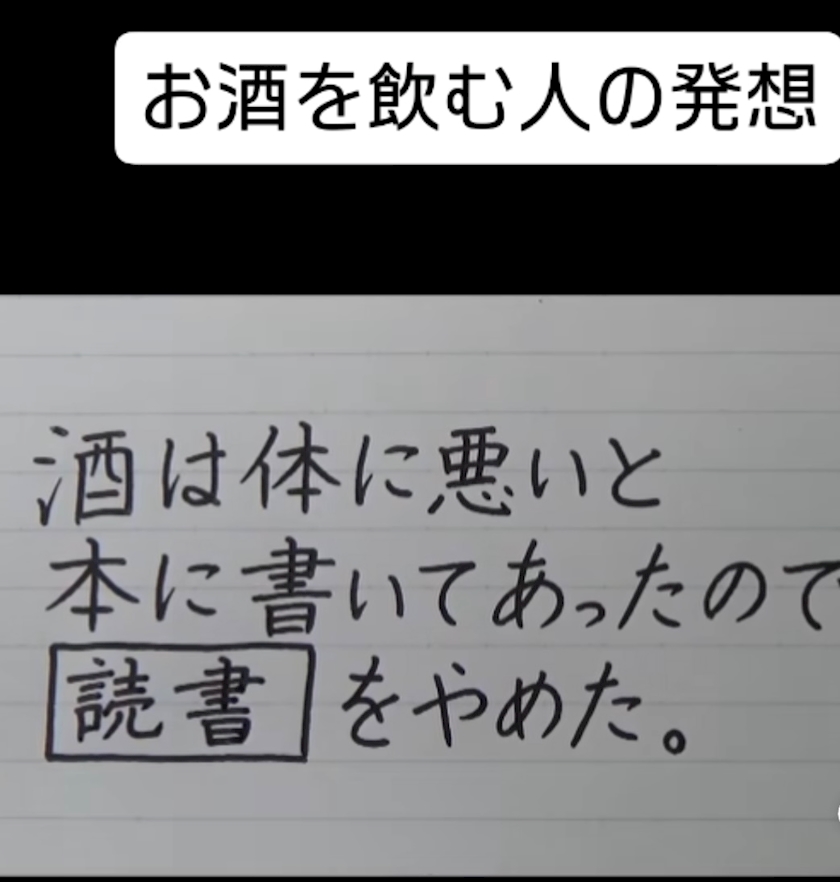 お酒を飲む人の発想
酒は体に悪いと
本に書いてあったので
読書をやめた。